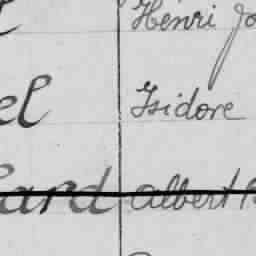 Henri Jo
el Isidore
ard Albert